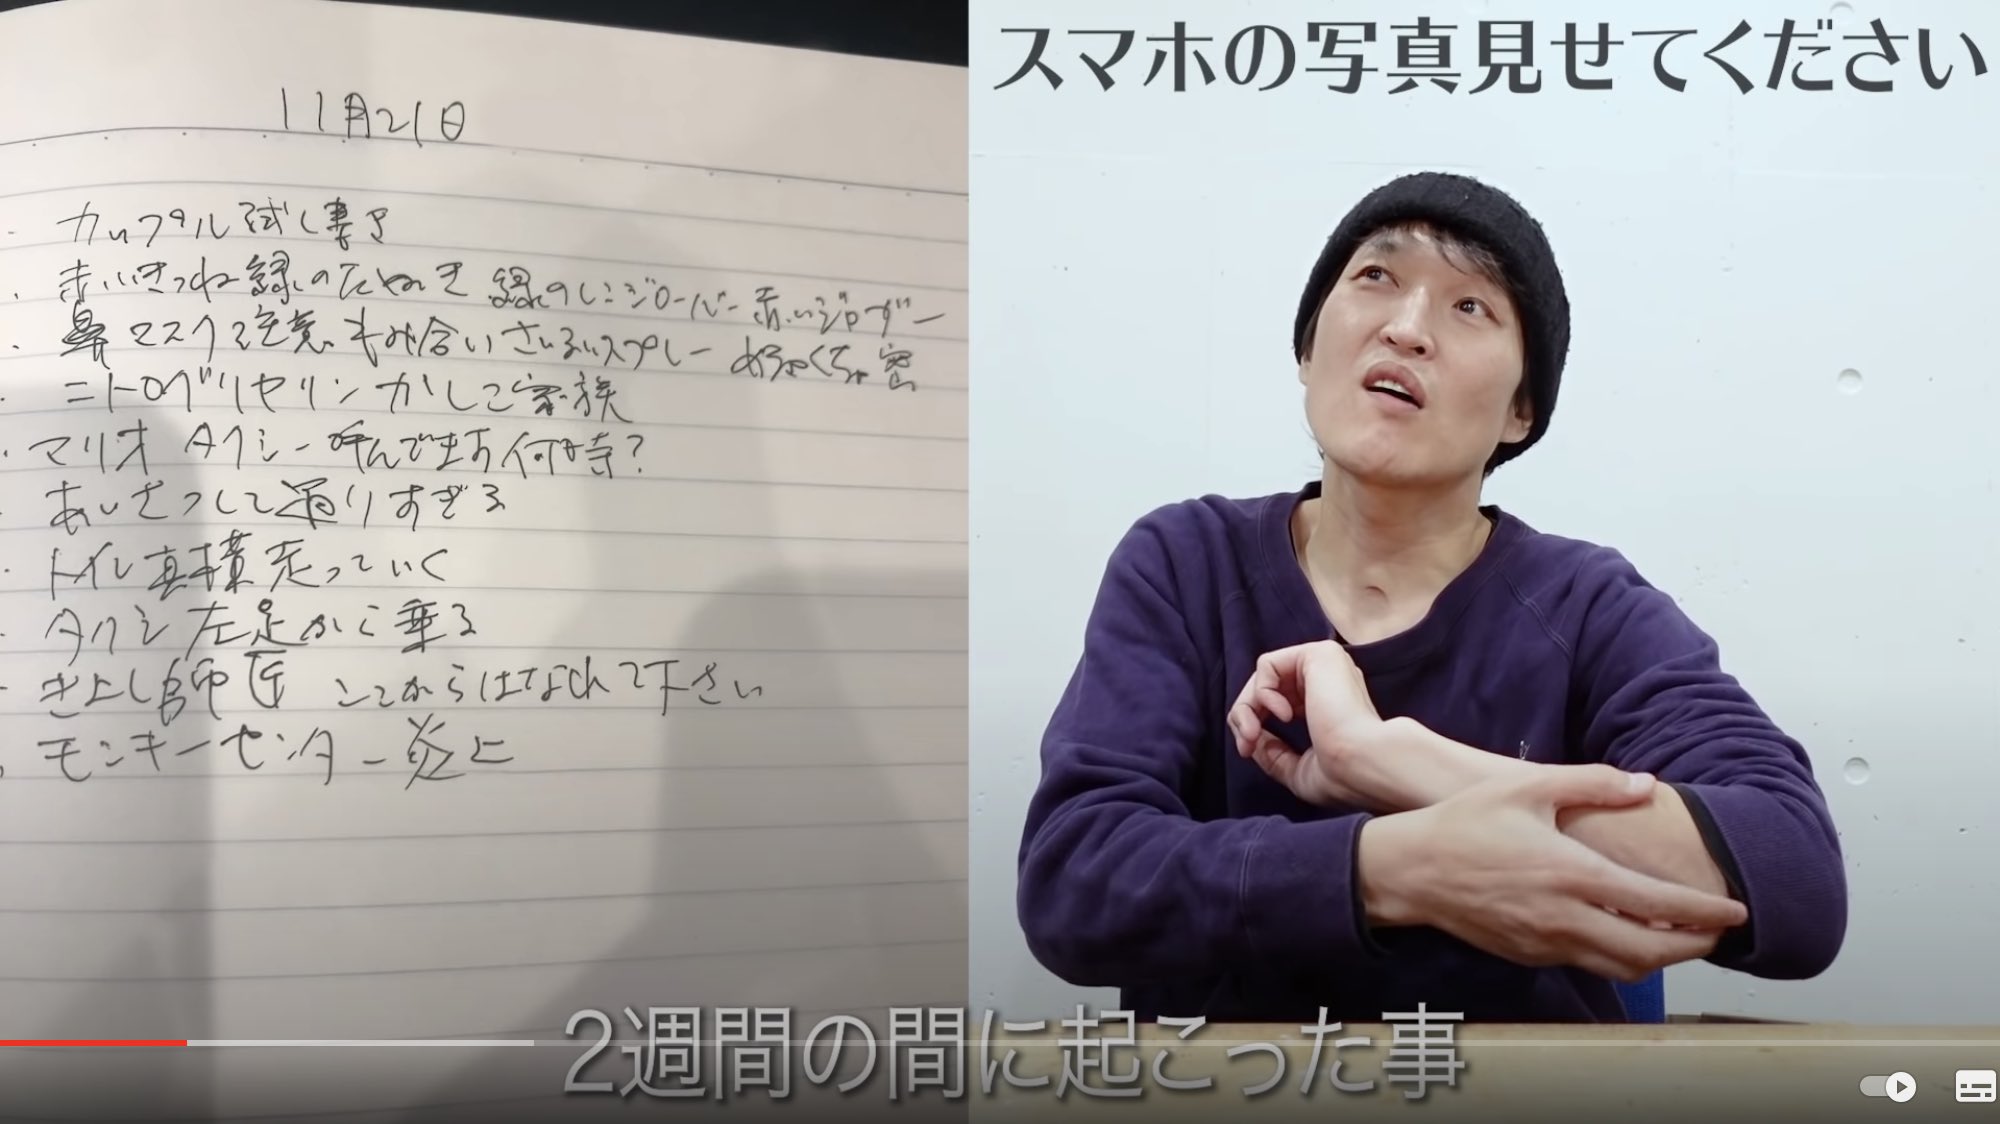 11月21日
・カップル試し書き
・赤いきつね緑のたぬき 緑のレンジローバー 赤いジローザー
・鼻マスク注意 もみ合い さいるいスプレー めちゃくちゃ密
・ニトログリセリン かしこ家族
・マリオ タクシー呼んでます何時?
・あいさつして通りすぎる
・トイレ 真横 走っていく
・タクシ 左足から乗る
・き上し師匠 ここからはなれて下さい
・モンキーセンター炎上
スマホの写真見せてください
2週間の間に起こった事